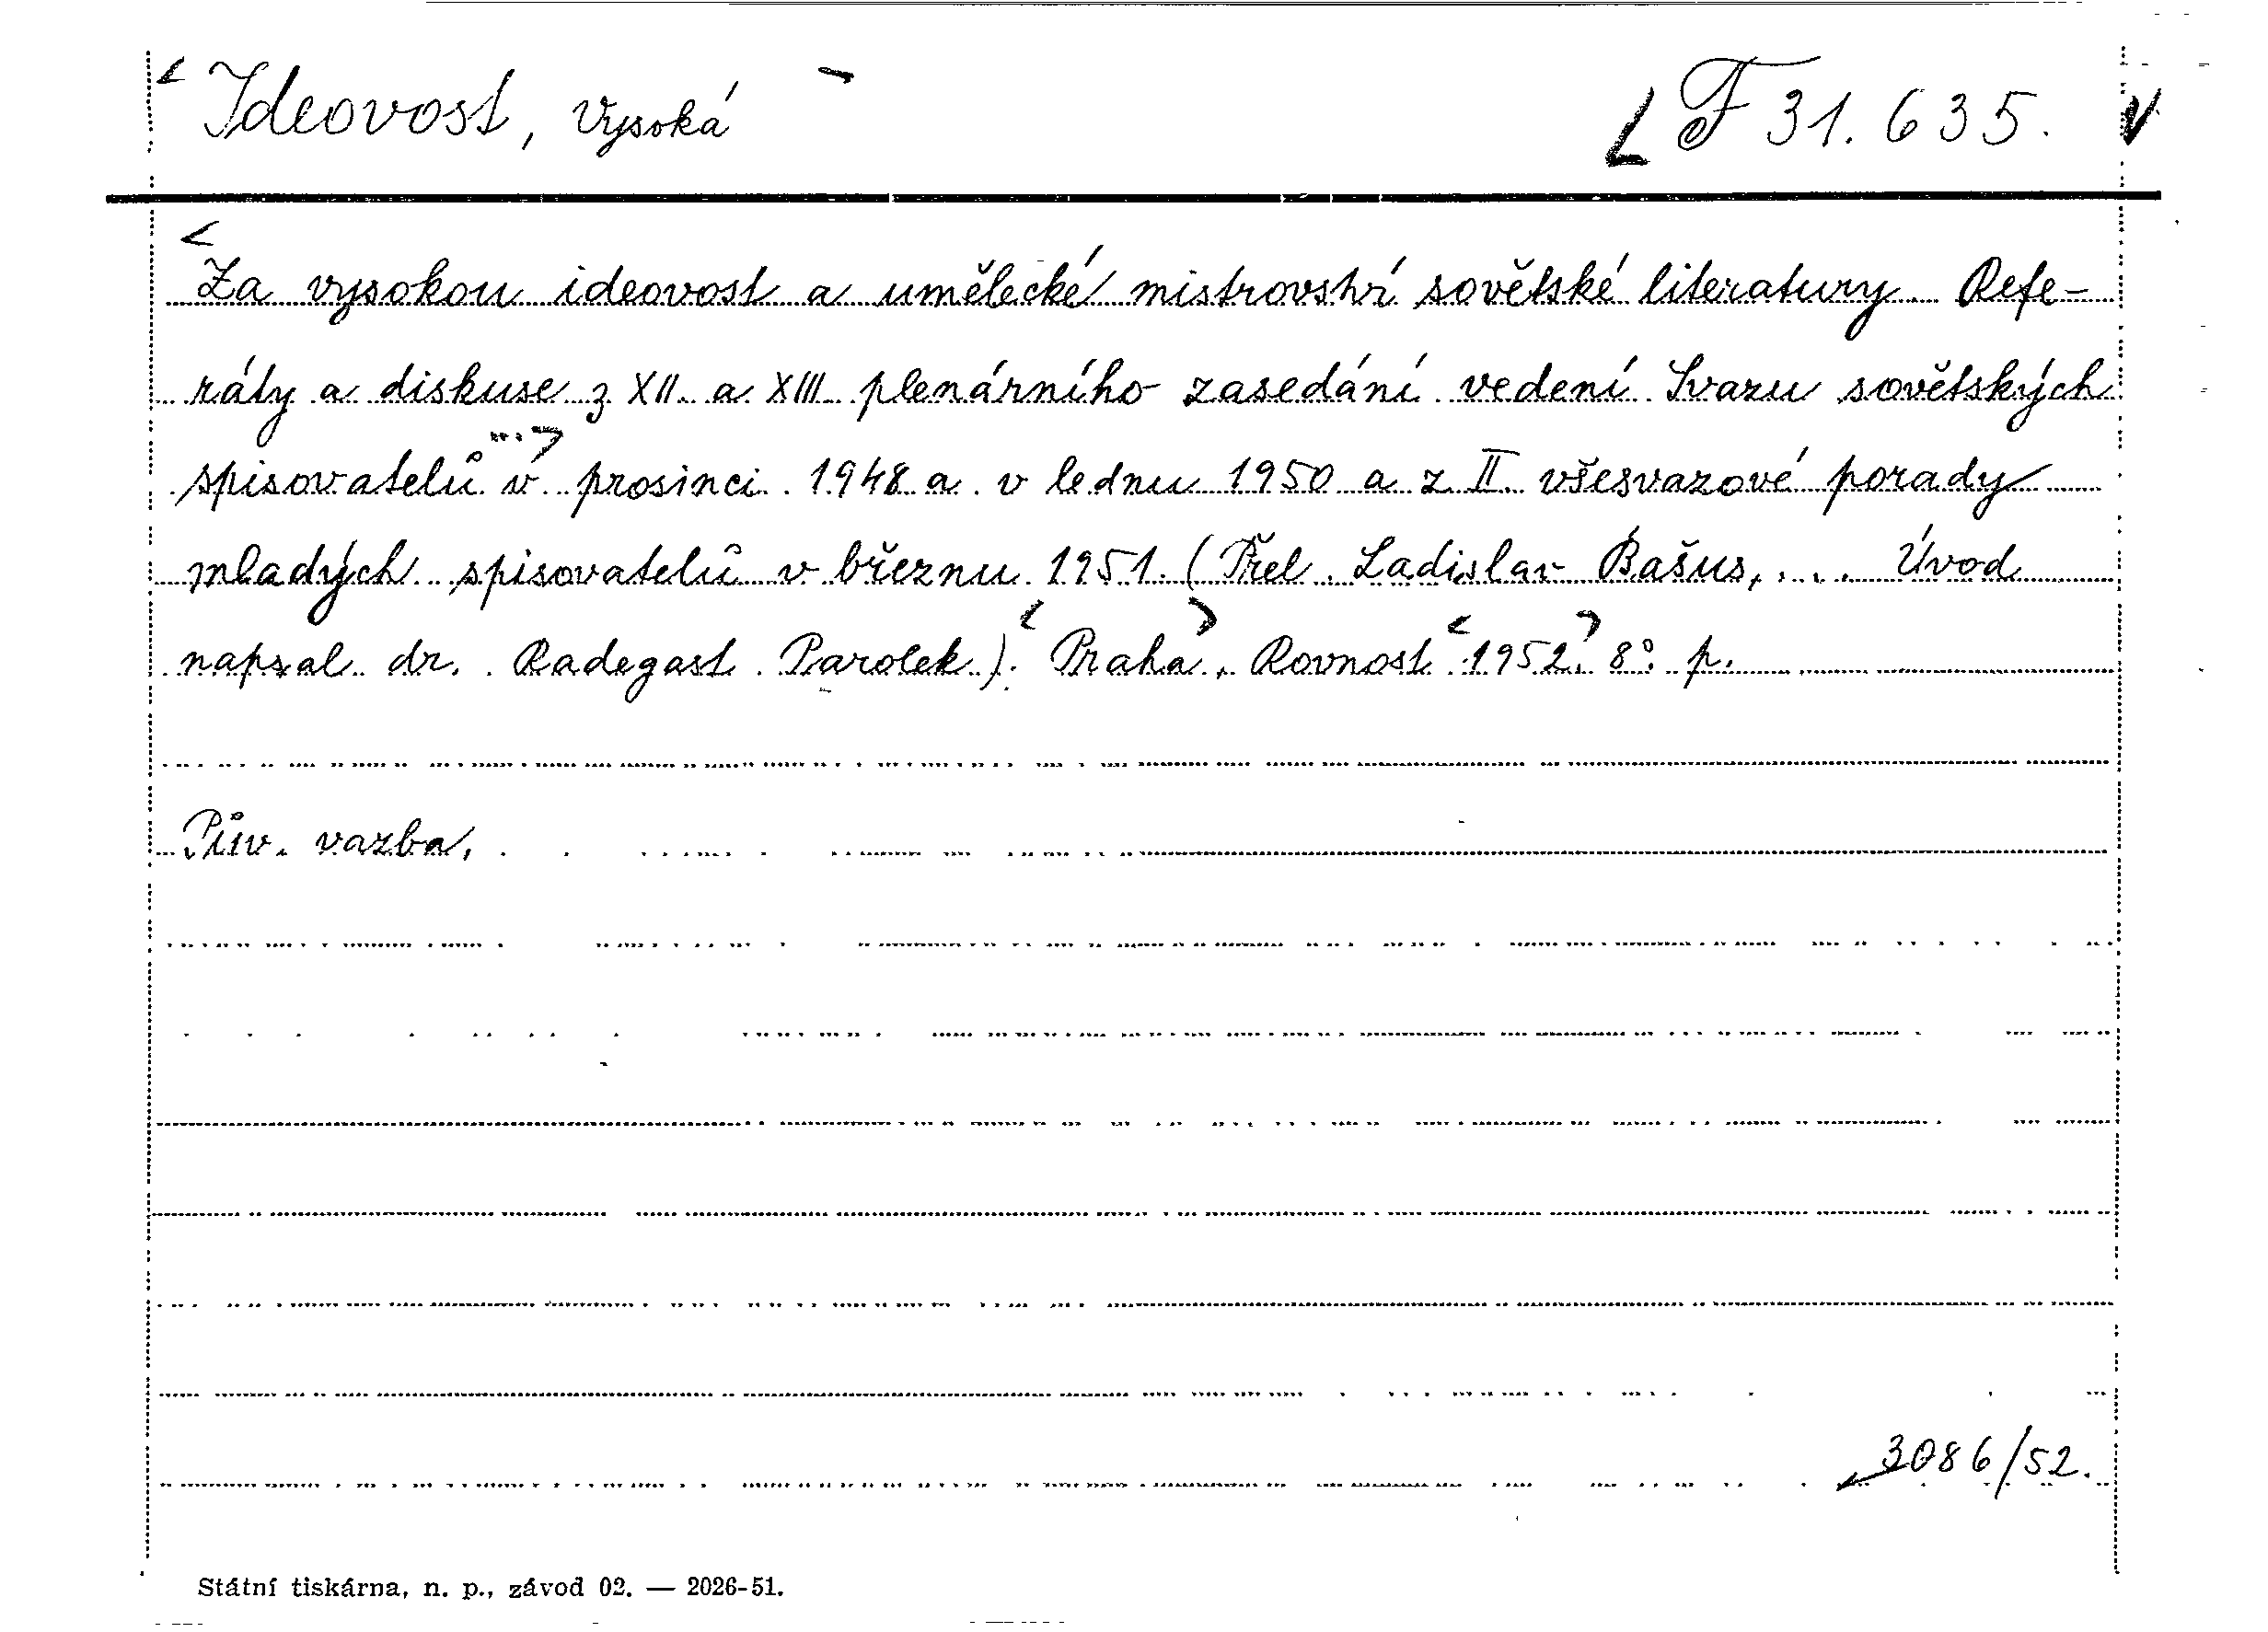 Ideovost, vysoká
F 31.635.
Za vysokou ideovost a umělecké mistrovství sovětské literatury. Refe-
ráty a diskuse z XII. a XIII. plenárního zasedání vedení Svazu sovětských
spisovatelů v prosinci 1948 a v lednu 1950 a z II. všesvazové porady
mladých spisovatelů v březnu 1951. (Přel. Ladislav Bašus, ... Úvod
napsal dr. Radegast Parolek). Praha, Rovnost 1952. 8°. p.
Pův. vazba.
3086/52.
Státní tiskárna, n. p., závod 02. — 2026-51.